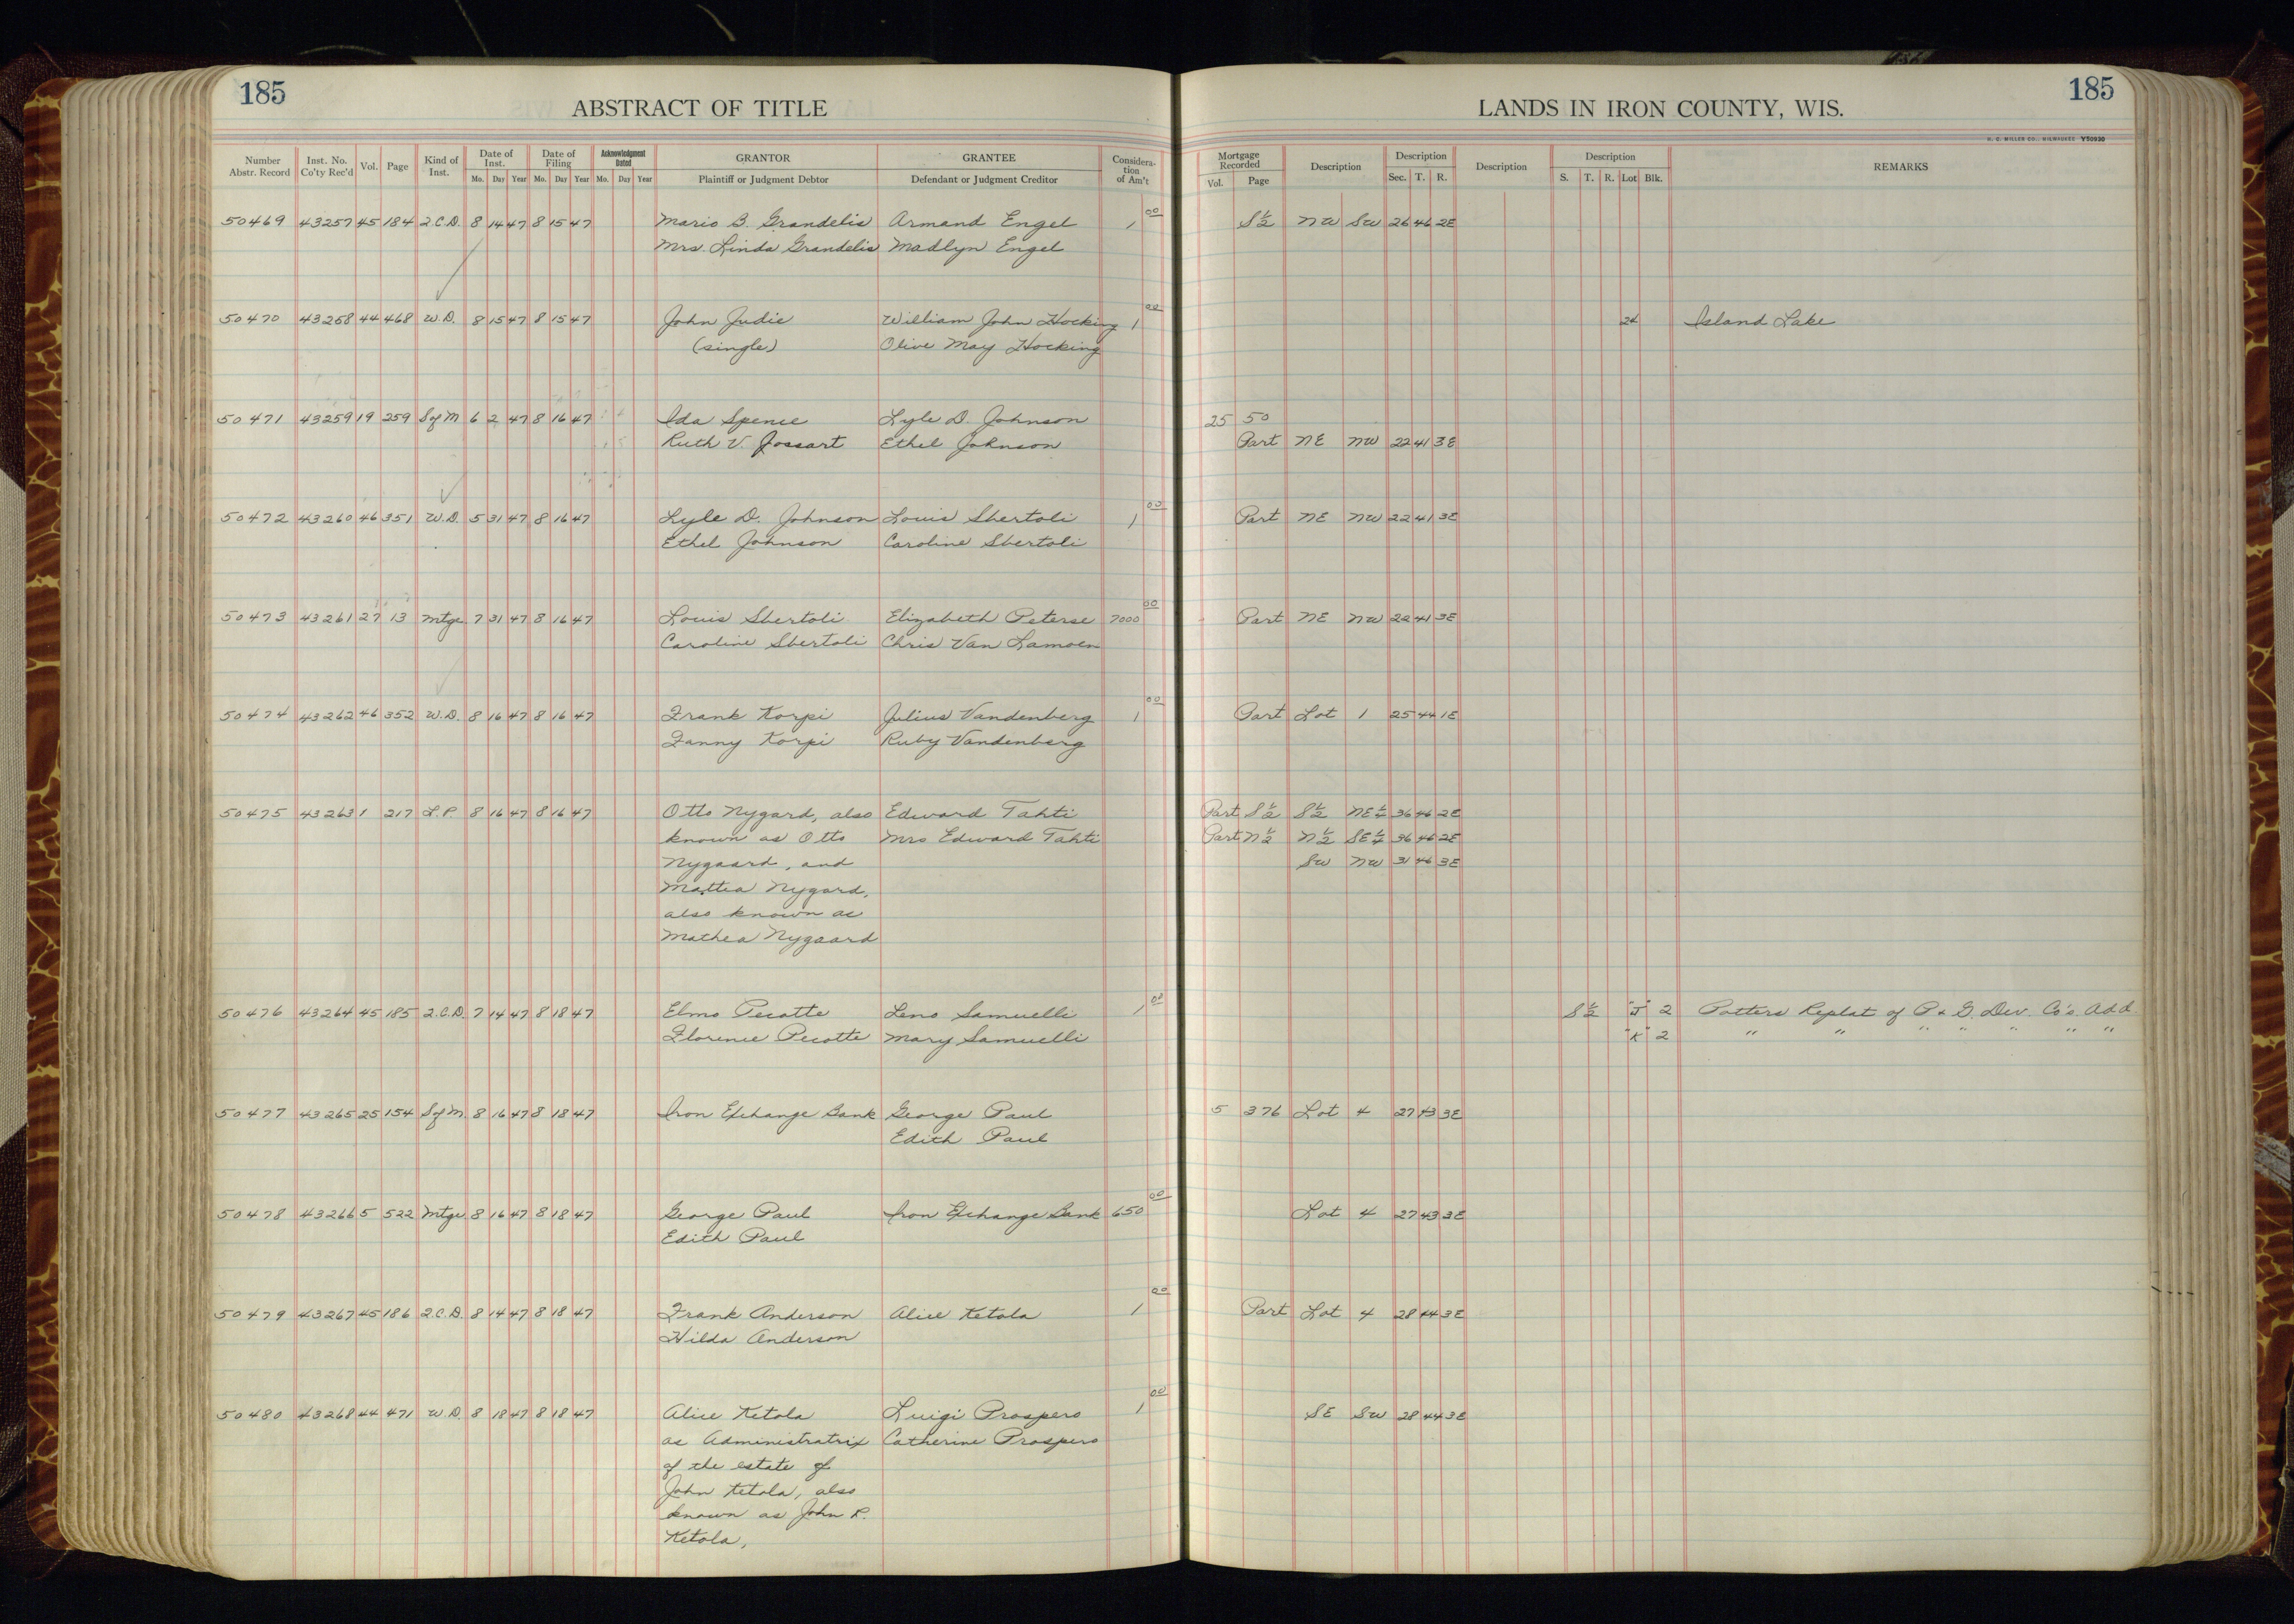 185
ABSTRACT OF TITLE
LANDS IN IRON COUNTY, WIS.
185
H. C. MILLER CO., MILWAUKEE Y50930
Number Abstr. Record Inst. No. Co'ty Rec'd Vol. Page Kind of Inst. Date of Inst. Mo. Day Year Date of Filing Mo. Day Year Acknowledgment Dated Mo. Day Year GRANTOR Plaintiff or Judgment Debtor GRANTEE Defendant or Judgment Creditor Considera-tion of Am't Mortgage Recorded Vol. Page Description Description Sec. T. R. Description Description S. T. R. Lot Blk. REMARKS
50469 43257 45 184 2.C.D. 8 14 47 8 15 47 Mario B. Grandelis Armand Engel 1 00 S½ NW SW 26 46 2E
Mrs. Linda Grandelis Madlyn Engel
50470 43258 44 468 W.D. 8 15 47 8 15 47 John Judie William John Hocking 1 00 24 Island Lake
(single) Olive May Hocking
50471 43259 19 259 S of M 6 2 47 8 16 47 Ida Spence Lyle D. Johnson 25 50
Ruth V. Jossart Ethel Johnson Part NE NW 22 41 3E
50472 43260 46 351 W.D. 5 31 47 8 16 47 Lyle D. Johnson Louis Sbertoli 1 00 Part NE NW 22 41 3E
Ethel Johnson Caroline Sbertoli
50473 43261 27 13 Mtge 7 31 47 8 16 47 Louis Sbertoli Elizabeth Peterse 7000 00 Part NE NW 22 41 3E
Caroline Sbertoli Chris Van Lamoen
50474 43262 46 352 W.D. 8 16 47 8 16 47 Frank Korpi Julius Vandenberg 1 00 Part Lot 1 25 44 1E
Fanny Korpi Ruby Vandenberg
50475 43263 1 217 L.P. 8 16 47 8 16 47 Otto Nygard, also Edward Tahti Part S½ S½ NE¼ 36 46 2E
known as Otto Mrs Edward Tahti Part N½ N½ SE¼ 36 46 2E
Nygaard, and SW NW 31 46 3E
Mattia Nygard,
also known as
Mathea Nygaard
50476 43264 45 185 2.C.D. 7 14 47 8 18 47 Elmo Pecotte Leno Samuelli 1 00 S½ "J" 2 Potters Replat of P & G. Dev. Co's Add.
Florence Pecotte Mary Samuelli "K" 2 " " " " " " "
50477 43265 25 154 S of M. 8 16 47 8 18 47 Iron Exchange Bank George Paul 5 376 Lot 4 27 43 3E
Edith Paul
50478 43266 5 522 Mtge 8 16 47 8 18 47 George Paul Iron Exchange Bank 650 00 Lot 4 27 43 3E
Edith Paul
50479 43267 45 186 2.C.D. 8 14 47 8 18 47 Frank Anderson Alice Ketola 1 00 Part Lot 4 28 44 3E
Hilda Anderson
50480 43268 44 471 W.D. 8 18 47 8 18 47 Alice Ketola Luigi Prospero 1 00 SE SW 28 44 3E
as Administratrix Catherine Prospero
of the estate of
John Ketola, also
known as John R.
Ketola,